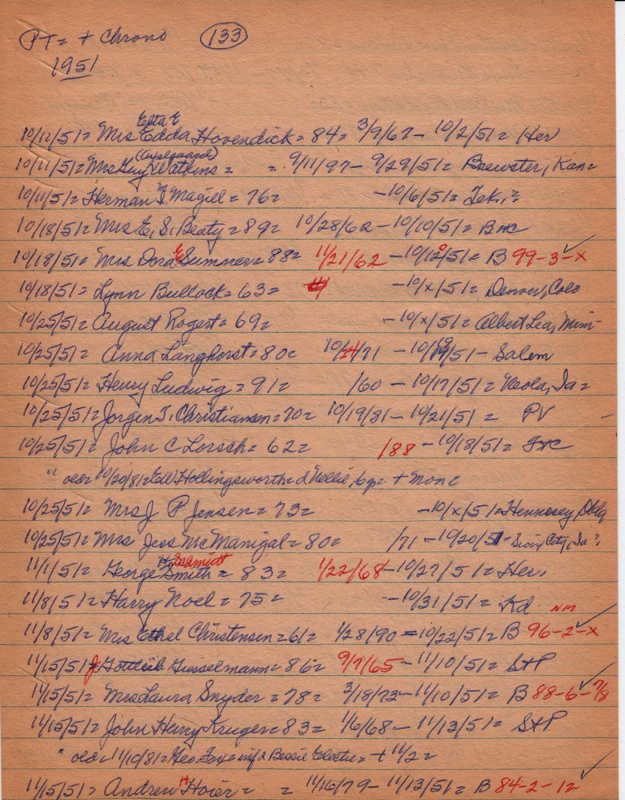 PT= + Chrono 133
1951
Etta E
10/11/51= Mrs Edda Hovendick= 84= 3/9/67- 10/2/51= Her
10/11/51= Mrs Guy Watkins= =. 9/11/97- 9/29/51= Brewster, Kan=
10/11/51= Herman Magiel= 76= -10/6/51= Tek.,?
10/18/51= Mrs E. S. Beaty= 89= 10/28/62-10/10/51= B+C
10/18/51= Mrs Dora E Sumner= 88= 11/21/62 -10/12/51= B 99-3-x
10/18/51= Lynn Bullock= 63= -10/x/51= Denver, Colo
10/25/51= August Rogert= 69= -10/x/51= Albert Lea, Minn-
10/25/51= Anna Langhorst= 80= 10/24/71 -10/19/51- Salem
10/25/51= Henry Ludwig= 91= /60 -10/17/51= Neola, Ia=
10/25/51= Jorgen T. Christiansen= 70= 10/19/81-10/21/51= PV -
10/25/51= John C Lorsch= 62= /88 -10/18/51=
" old= 10/20/81= Ed Hollingsworth= d Nellie, 6y= + mon=
10/25/51= Mrs J P Jensen= 73= -10/x/51= Hennesey, Okla
10/25/51= Mrs Jess McManigal= 80= /71 -10/20/51- Sioux City, Ia?
Schmidt
11/1/51= George Smith= 83= 1/22/68-10/27/51= Her.
11/8/51= Harry Noel= 75= -10/31/51= Kd. NM
11/8/51= Mrs Ethel Christensen= 61= 1/28/90=10/22/51= B 96-2-x
11/15/51= J Gottlieb Gusselmann= 86= 9/7/65-11/10/51= S+P
11/15/51= Mrs Laura Snyder= 78= 3/18/73-11/10/51= B 88-6-7/8
11/15/51= John Henry Kruger= 83= 1/6/68-11/13/51= S+P
" old= 11/10/81= Geo. Fox= inf= Bessie = + 11/2=
11/15/51= Andrew H Hoier= = 11/16/79-11/13/51= B 84-2-12